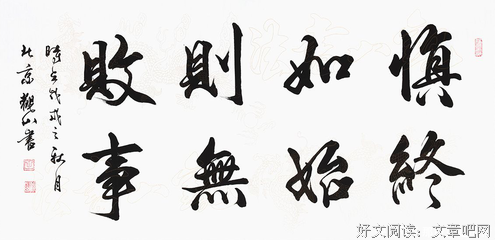 慎終
如始
則無
敗事
時在戊戌之秋月
北京觀山書
好文阅读：文章吧网